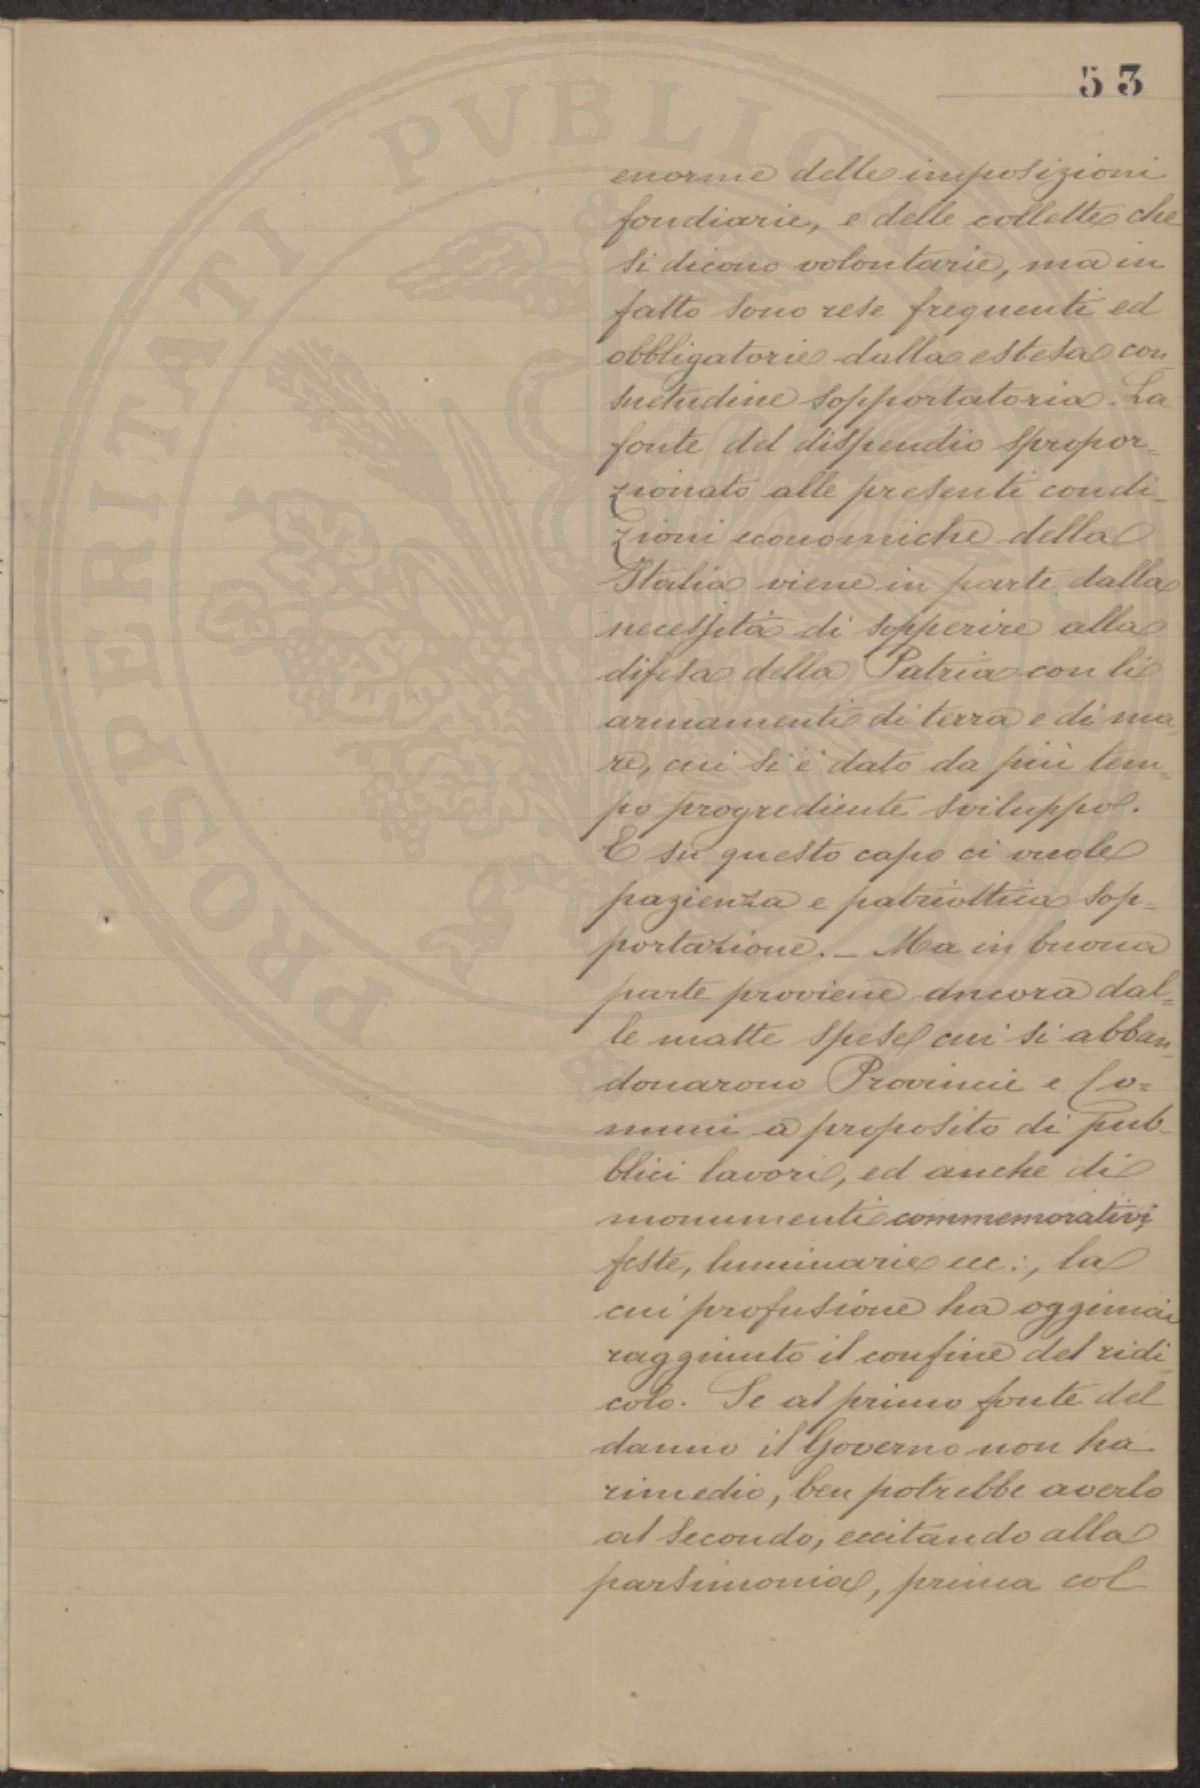 PROSPERITATI PVBLIC
53
enorme delle imposizioni
fondiarie, e delle collette che
si dicono volontarie, ma in
fatto sono rese frequenti ed
obbligatorie dalla estesa con
suetudine sopportatoria. La
fonte del dispendio spropor=
zionato alle presenti condi-
zioni economiche della
Italia viene in parte dalla
necessità di sopperire alla
difesa della Patria con li
armamenti di terra e di ma
re, cui si è dato da più tem=
po progrediente sviluppo.
E su questo capo ci vuole
pazienza e patriottica sop=
portazione. _ Ma in buona
parte proviene ancora dal=
le matte spese cui si abban
donarono Provincie e Co=
muni a proposito di pub-
blici lavori, ed anche di
monumenti commemorativi
feste, luminarie ecc:, la
cui profusione ha oggimai
raggiunto il confine del ridi
colo. Se al primo fonte del
danno il Governo non ha
rimedio, ben potrebbe averlo
al secondo, eccitando alla
parsimonia, prima col